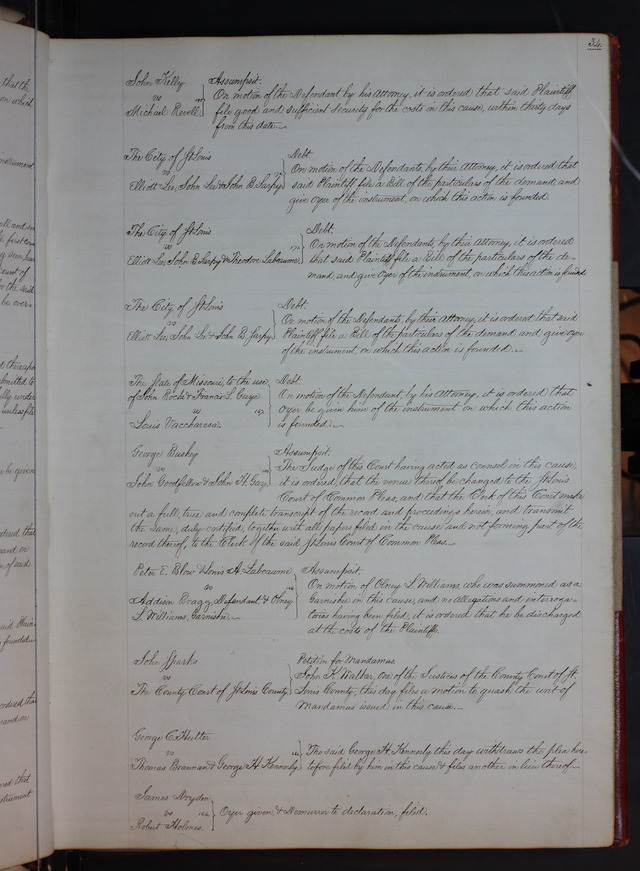 34.
John Kelly
vs
Michael Revell
Assumpsit.
On motion of the Defendant by his Attorney, it is ordered that said Plaintiff
file good and sufficient security for the costs in this cause, within thirty days
from this date.
The City of St Louis
vs
Elliott Lee, John Lee & John B. Sarpy
Debt.
On motion of the Defendants, by their Attorney, it is ordered that
said Plaintiff file a Bill of the particulars of the demand, and
give Oyer of the instrument, on which this action is founded.
The City of St Louis
vs
Elliott Lee, John B. Sarpy & Theodore Labeaume
Debt.
On motion of the Defendants, by their Attorney, it is ordered
that said Plaintiff file a Bill of the particulars of the de-
mand, and give Oyer of the instrument, on which this action is founded
The City of St Louis
vs
Elliott Lee, John Lee & John B. Sarpy
Debt.
On motion of the Defendants, by their Attorney, it is ordered that said
Plaintiff file a Bill of the particulars of the demand and give oyer
of the instrument, on which this action is founded.
The State of Missouri, to the use
of John Roche & Francis L.
vs
Louis Vaccharesa.
Debt.
On motion of the Defendant, by his Attorney, it is ordered that
Oyer be given him of the instrument on which this action
is founded.
George Busby
vs
John Goodfellow & John H. Gay
Assumpsit.
The Judge of this Court having acted as counsel in this cause,
it is ordered, that the venue thereof be changed to the St Louis
Court of Common Pleas, and that the Clerk of this Court make
out a full, true and complete transcript of the record and proceedings herein, and transmit
the same, duly certified, together with all papers filed in the cause, and not forming part of the
record thereof, to the Clerk of the said St Louis Court of Common Pleas.
Peter E. Blow & Louis A. Labeaume
vs
Addison Bragg, Defendant & Olney
L. Williams, Garnishee.
Assumpsit.
On motion of Olney L. Williams, who was summoned as a
Garnishee in this cause, and no allegations and interroga-
tories having been filed, it is ordered that he be discharged
at the costs of the Plaintiffs.
John Sparks
vs
The County Court of St Louis County
Petition for Mandamus.
John K. Walker, one of the Justices of the County Court of St.
Louis County, this day files a motion to quash the writ of
Mandamus issued in this cause.
George C. Hutter
vs
Thomas Brannan & George H. Kennerly
The said George H. Kennerly this day withdraws the plea here
tofore filed by him in this cause & files another in lieu thereof.
James Dryden
vs
Robert Holmes.
Oyer given, & Demurrer to declaration, filed.